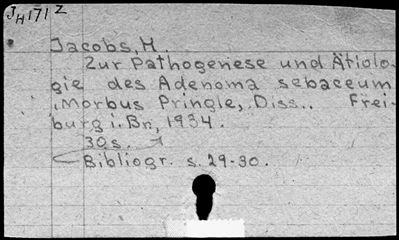 JH171Z
Jacobs, H.
Zur Pathogenese und Ätiolo-
gie des Adenoma sebaceum
,Morbus Pringle, Diss.. Frei-
burg i. Br, 1934.
30 s.
Bibliogr. s. 29-30.